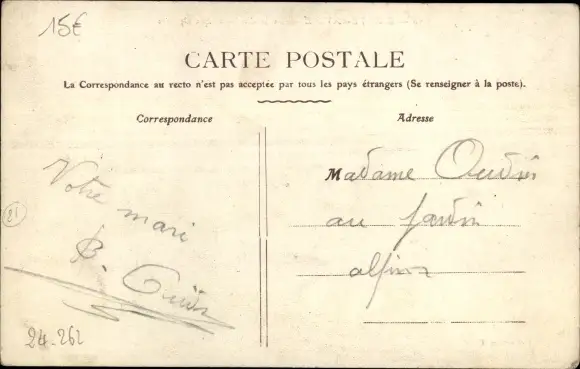 15€
CARTE POSTALE
La Correspondance au recto n'est pas acceptée par tous les pays étrangers (Se renseigner à la poste).
Correspondance
Adresse
Madame Oudin
au jardin
alpin
Votre mari
B. Oudin
21
24-262